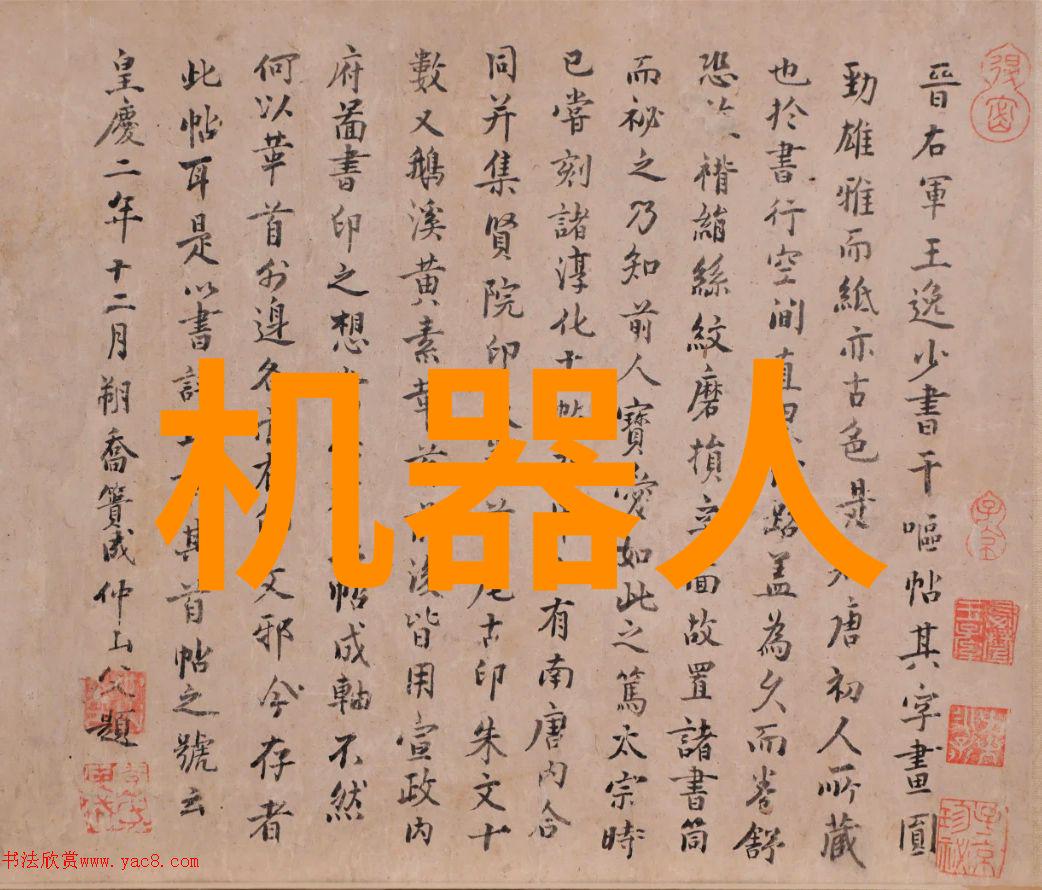 晉右軍王逸少書干嘔帖其字畫圓
勁雄雅而紙亦古色是唐初人所藏
也於書行空間直蓋為久而卷舒
恐褙緝絲紋磨損字面故置諸書筒
而祕之乃知前人寶愛如此之篤太宗時
已嘗刻諸淳化十帖有南唐內合
同并集賢院印古印朱文十
數又鵝溪黃素皆用宣政內
府圖書印之想帖成軸不然
何以華首外邊各文邪今存者
此帖耳是以書其首帖之號云
皇慶二年十二月朔喬簣成仲山父題
机器人
书法欣赏www.yac8.com